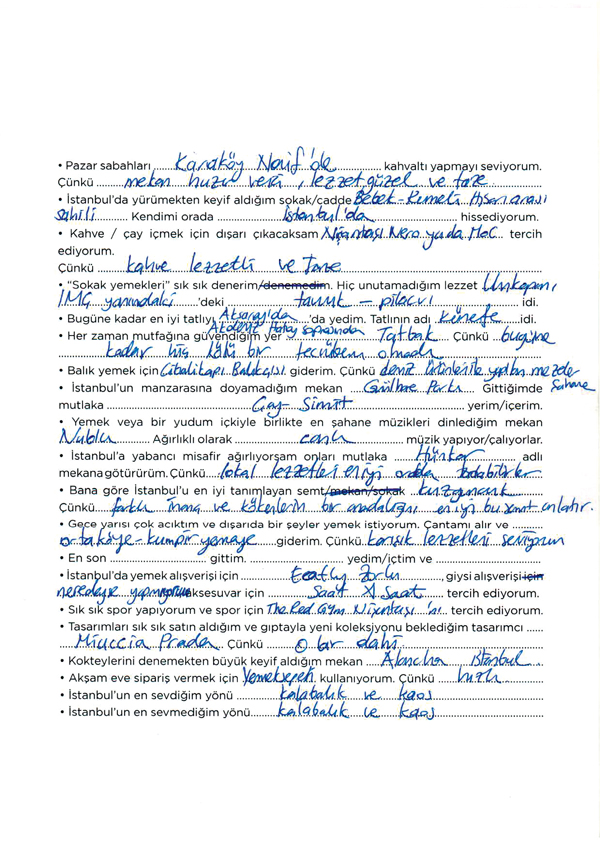 • Pazar sabahları Karaköy Naif'de kahvaltı yapmayı seviyorum.
Çünkü mekan huzur verici, lezzet güzel ve taze
• İstanbul'da yürümekten keyif aldığım sokak/cadde Bebek - Rumeli Hisarı arası
sahili Kendimi orada İstanbul'da hissediyorum.
• Kahve / çay içmek için dışarı çıkacaksam Nişantaşı Nero ya da MOC tercih
ediyorum.
Çünkü kahve lezzetli ve taze
• "Sokak yemekleri" sık sık denerim/denemedim. Hiç unutamadığım lezzet Unkapanı,
IMÇ yanındaki 'deki tavuk - pilavı idi.
• Bugüne kadar en iyi tatlıyı Aksaray'da 'da yedim. Tatlının adı künefe idi.
Akdeniz Hatay Sofrasında
• Her zaman mutfağına güvendiğim yer Tatbak Çünkü bugüne
kadar hiç kötü bir tecrübem olmadı
• Balık yemek için Cibalikapı Balıkçısı giderim. Çünkü deniz ürünleriyle yapılan mezeler
şahane
• İstanbul'un manzarasına doyamadığım mekan Gülhane Parkı Gittiğimde
mutlaka Çay - Simit yerim/içerim.
• Yemek veya bir yudum içkiyle birlikte en şahane müzikleri dinlediğim mekan
Nublu Ağırlıklı olarak canlı müzik yapıyor/çalıyorlar.
• İstanbul'a yabancı misafir ağırlıyorsam onları mutlaka Hünkar adlı
mekana götürürüm. Çünkü lokal lezzetleri en iyi orada tadabilirler
• Bana göre İstanbul'u en iyi tanımlayan semt/mekan/sokak kuzguncuk
Çünkü farklı inanç ve kökenlerin bir aradalığını en iyi bu semt anlatır.
• Gece yarısı çok acıktım ve dışarıda bir şeyler yemek istiyorum. Çantamı alır ve
ortaköye - kumpir yemeye giderim. Çünkü karışık lezzetleri seviyorum
• En son gittim. yedim/içtim ve
• İstanbul'da yemek alışverişi için eataly Zorlu, giysi alışverişi için
neredeyse yapmıyorum aksesuvar için Saat & Saat tercih ederim.
• Sık sık spor yapıyorum ve spor için The Red Gym Nişantaşı 'nı tercih ediyorum.
• Tasarımları sık sık satın aldığım ve gıptayla yeni koleksiyonu beklediğim tasarımcı
Miuccia Prada Çünkü o bir dahi
• Kokteylerini denemekten büyük keyif aldığım mekan Alancha İstanbul
• Akşam eve sipariş vermek için Yemeksepeti kullanıyorum. Çünkü hızlı
• İstanbul'un en sevdiğim yönü kalabalık ve kaos
• İstanbul'un en sevmediğim yönü kalabalık ve kaos